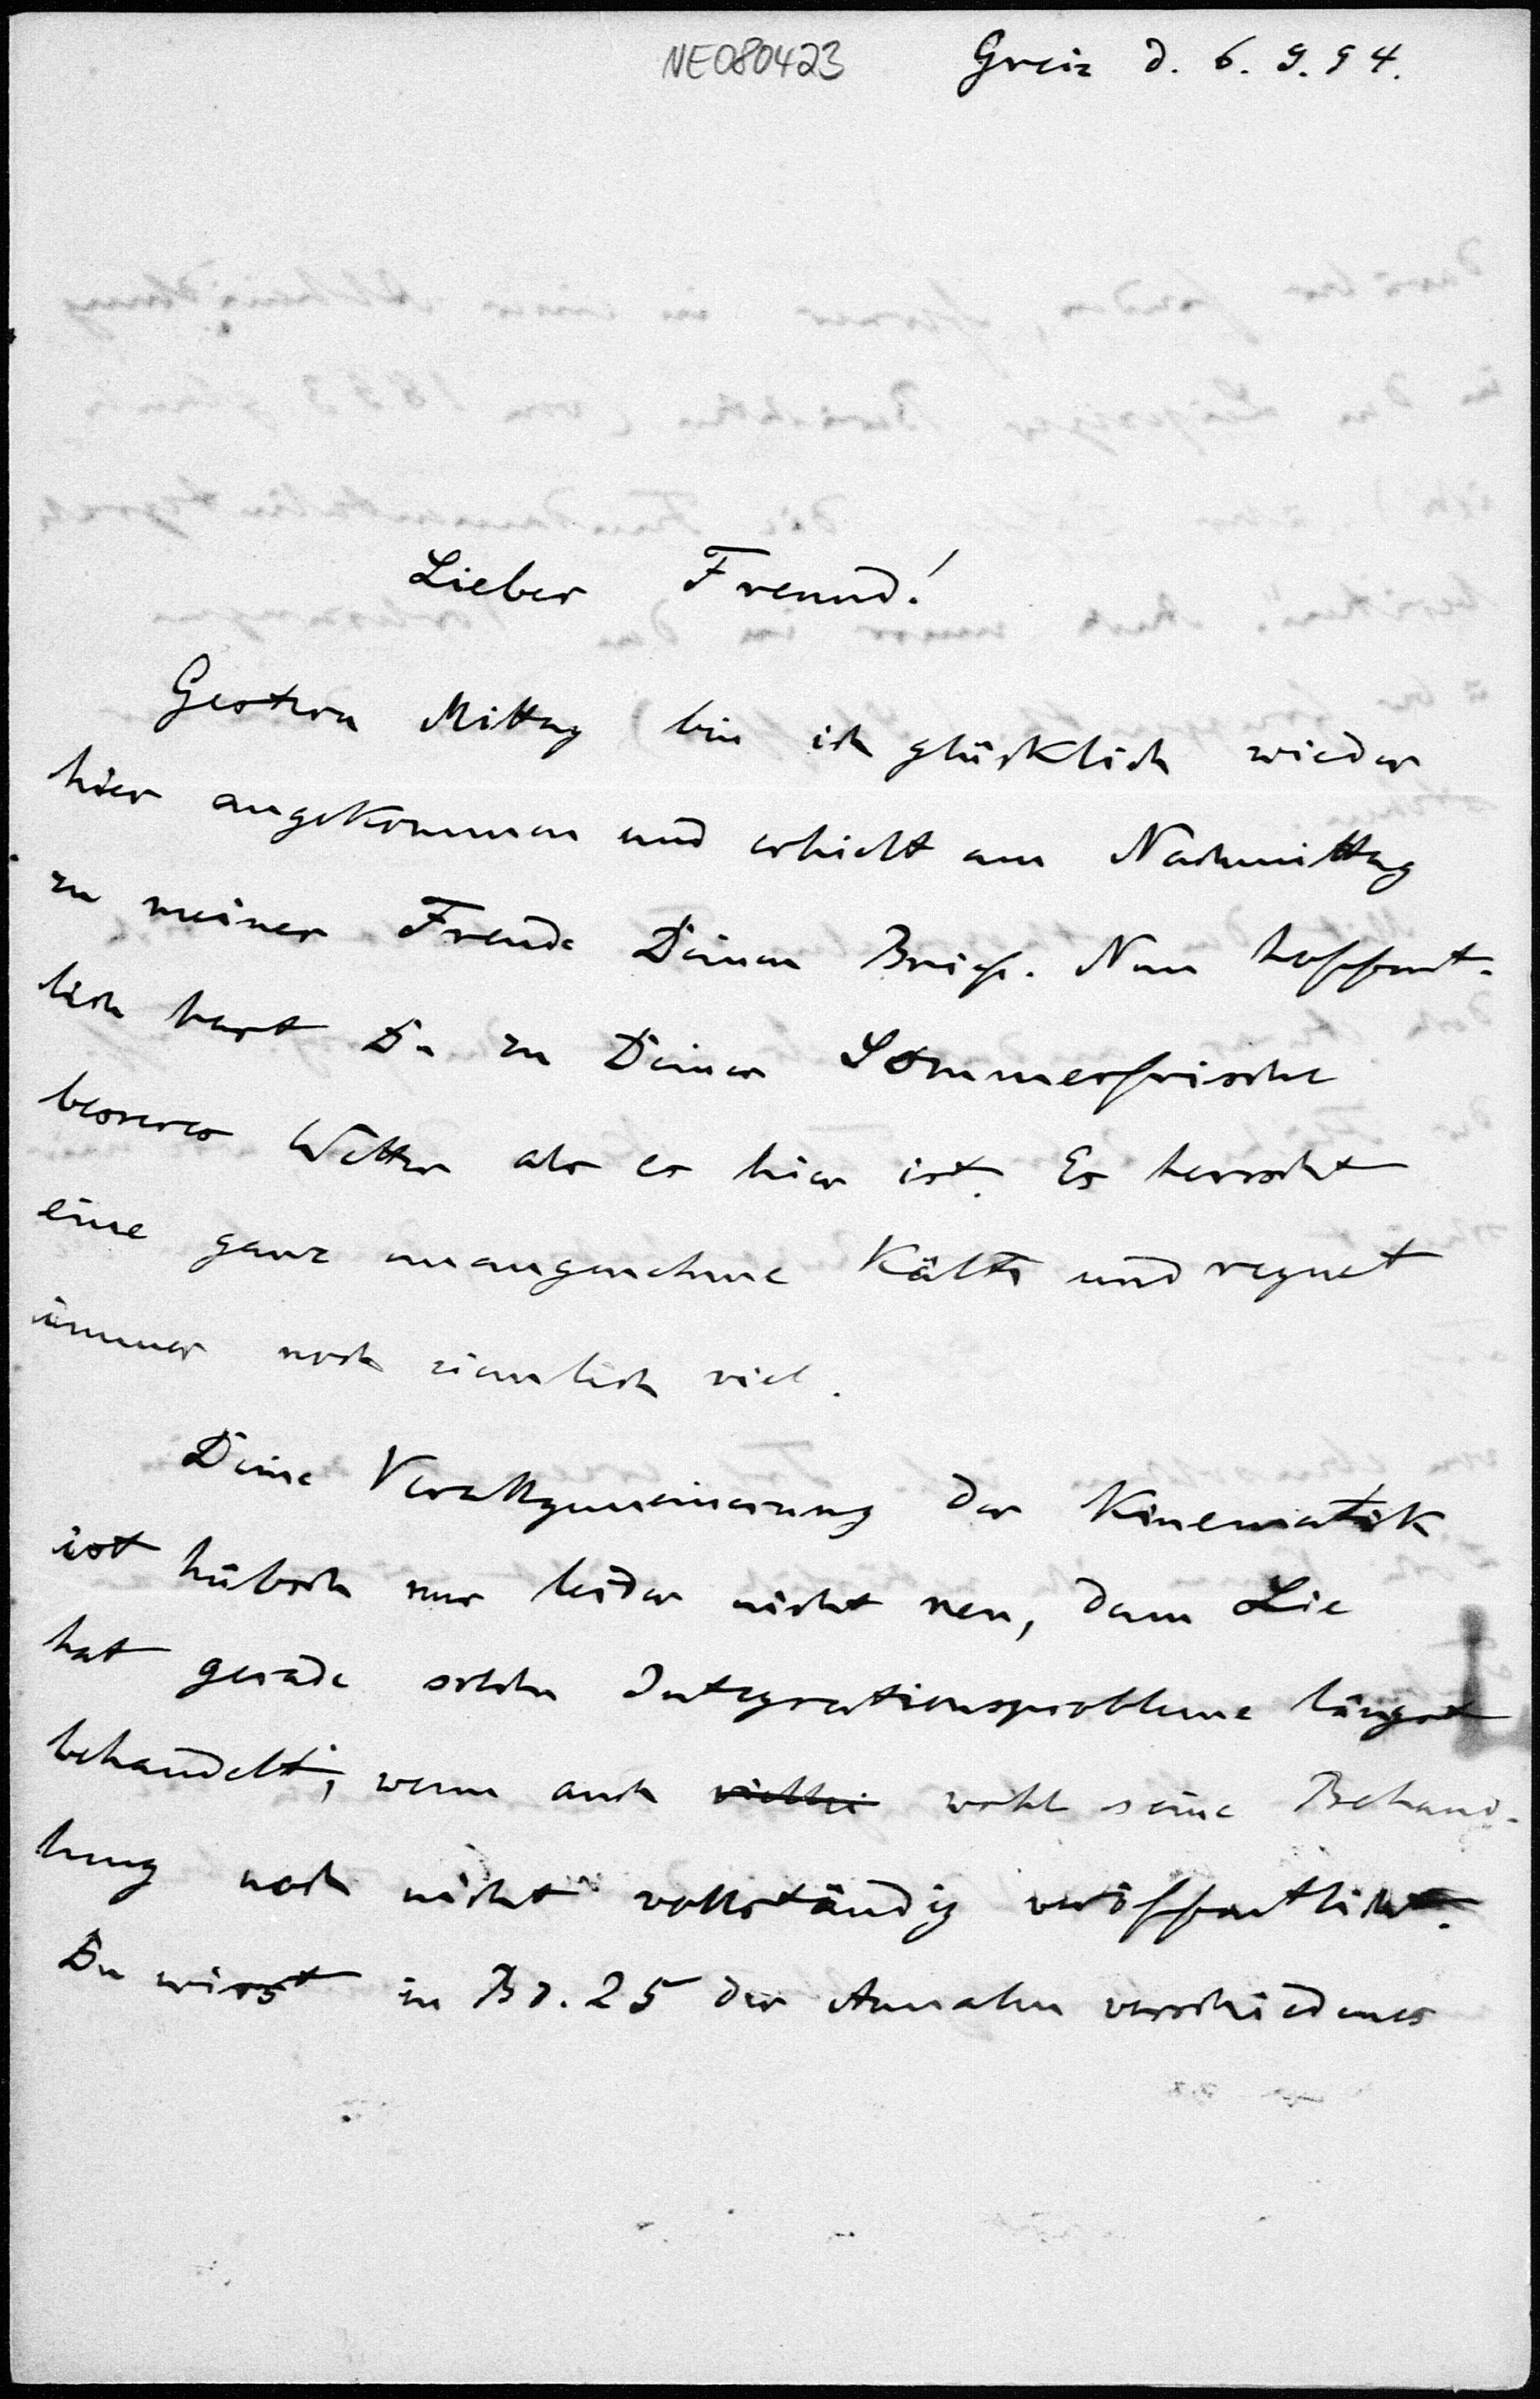 NE080423
Greiz d. 6. 9. 94.
Lieber Freund!
Gestern Mittag bin ich glücklich wieder
hier angekommen und erhielt am Nachmittag
zu meiner Freude Deinen Brief. Nun hoffent-
lich hast Du zu Deiner Sommerfrische
besseres Wetter als es hier ist. Es herrscht
eine ganz unangenehme Kälte und regnet
immer noch ziemlich viel.
Deine Verallgemeinerung der Kinematik
ist hübsch nur leider nicht neu, denn Lie
hat gerade solche Integrationsprobleme längst
behandelt, wenn auch viellei wohl seine Behand-
lung noch nicht vollständig veröffentlicht.
Du wirst in Bd. 25 der Annalen verschiedenes